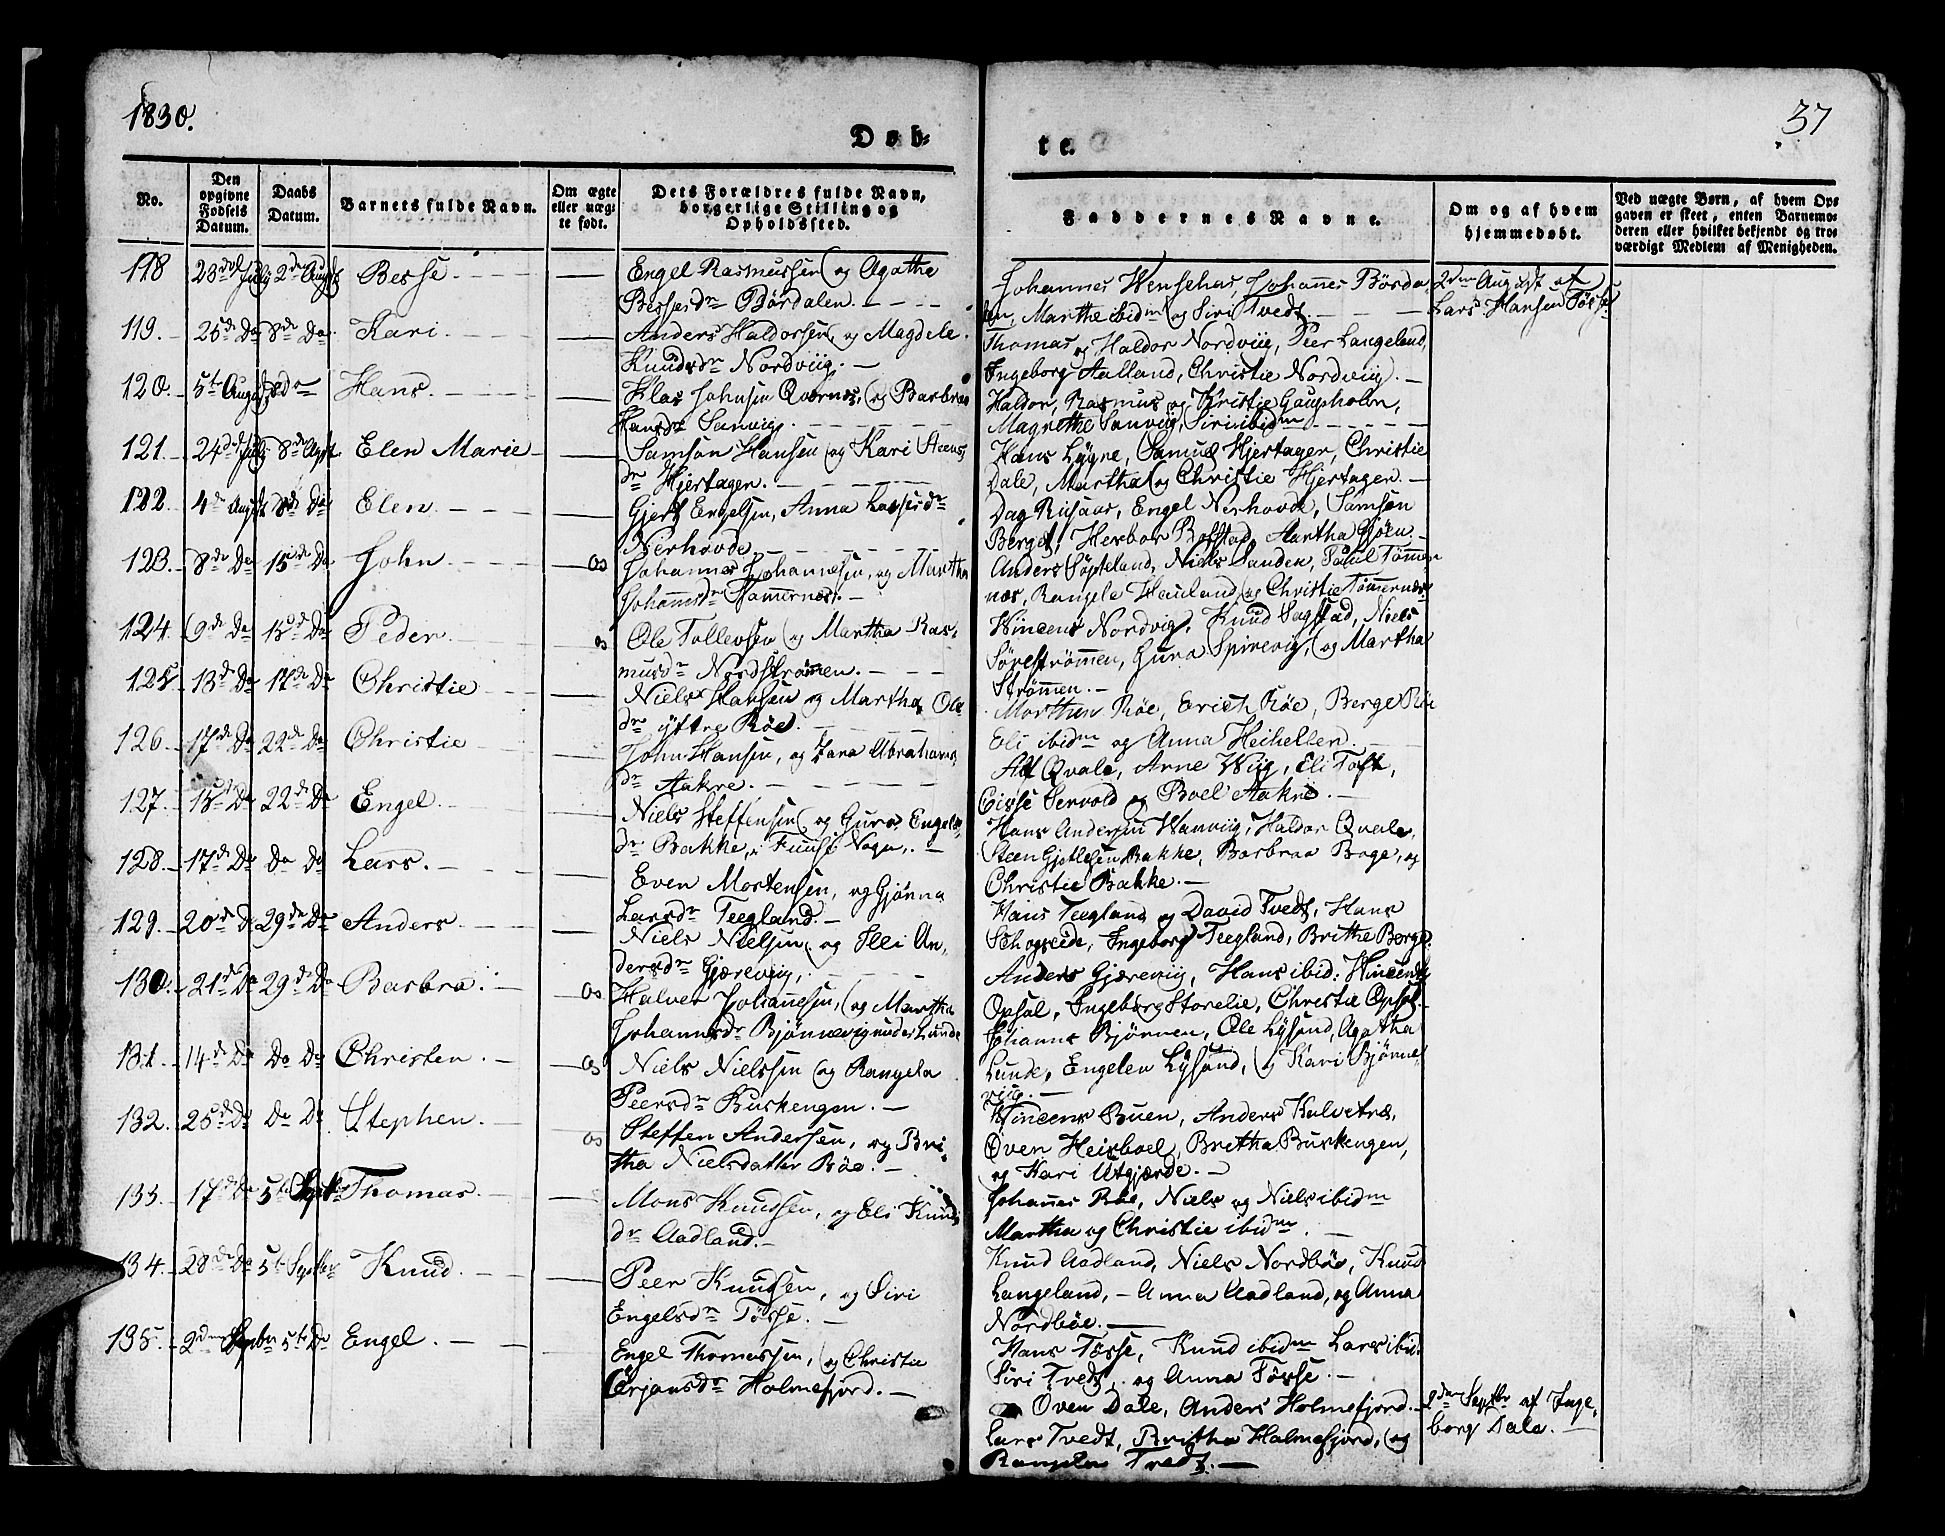 1830.
37
Døb-
te.
No.
Den opgivne Fødsels Datum.
Daabs Datum.
Barnets fulde Navn.
Om ægte eller uægte født.
Dets Forældres fulde Navn, borgerlige Stilling og Opholdssted.
Faddernes Navne.
Om og af hvem hjemmedøbt.
Ved uægte Børn, af hvem Opgaven er skeet, enten Barnemoderen eller hvilket bekjendt og troværdigt Medlem af Menigheden.
118 23de July 2de Augst Besse. Engel Rasmussen og Agathe
Bessesdr Bördalen.
Johannes Wensehas, Johannes Börda
len, Marthe ibidm og Siri Tvedt.
2den August af
Lars Hansen Tösse
119. 25de Do 8de Do Kari. Anders Haldorsen og Magdele
Knudsdr Nordviig.
Thomas og Haldor Nordviig, Peer Langeland,
Ingeborg Aalland, Christie Nordviig.
120. 5te Augst 8de Hans. Klas Johnsen Qværnes, og Barbraa
Hansdr Samvig.
Haldor, Rasmus og Kristie Gaupholm,
Magrethe Sanviig, Siri ibidm
121. 24de July 8de Agst. Elen Marie Samson Hansen og Kari Steens
dr Hjertagen.
Hans Lygne, Samuel Hjertager, Christie
Dale, Martha og Christie Hjertagen.
122. 4de August 8de Do Elen Gjert Engelsen, Anna Lassesdr
Nerhovde
Dag Rusaas, Engel Nerhovde, Samson
Berget, Herbor Bolstad, Martha Gjöen.
123. 8de Do 15de Do John Os Johannes Johannesen, og Martha
Johannsdr Tömernes.
Anders Söfteland, Niels Sanden, Paul Tömmer
næs, Rangele Hauland, og Christie Tömmernæs
124. 9de Do 15de Do Peder. Os Ole Tollevsen og Martha Ras-
musdr Nordströmen.
Wincens Nordvig, Knud Sagstad, Niels
Söreströmmen, Gura Spirevig, og Martha
Strömmen.
125. 13de Do 17de Do Christie Niels Hansen og Martha Ole
dr yttre Röe.
Morthen Röe, Erich Röe, Berge Röe
Eli ibidm og Anna Heihellen.
126. 17de Do 22de Do Christie John Hansen, og Jana Abrahams
dr Aakre.
Alf Qvale, Arne Wiig, Eli Toft,
Cisse Servold og Boel Aakre.
127. 15de Do 22de Do Engel. Niels Steffensen og Gura Engels
dr Bakke, i Fuuse Sogn.
Hans Andersen Wanviig, Haldor Qvale,
Steen Gjetlesen Bakke, Barbraa Boge, og
Christie Bakke.
128. 17de Do Do Do Lars. Even Mortensen, og Gjönna
Larsdr Teegland.
Hans Teegland og David Tvedt, Hans
Schogseide, Ingeborg Teegland, Brithe Berge.
129. 20de D 29de Do Anders Niels Nielsen og Illi An-
dersdr Gjærevig.
Anders Gjærevig, Hans ibid: Wincents
Opsal, Ingeborg Storelie, Christie Opsal.
130. 21de Do 29de Do Barbra. Os Halver Johannesen, og Martha
Johannsdr Björnevig under Lunde
Johanns Björnen, Ole Lysand, Agatha
Lunde, Engelen Lysand, og Kari Björne
vig.
131. 14de Do Do Do Christen. Os Niels Nielssen og Rangela
Peersdr Buskengen.
Wincens Buen, Anders Kalvetræ,
Öven Heisboel, Britha Buskengen,
og Kari Utgjærde.
132. 25de Do Do Do Stephen. Os Steffen Andersen, og Bri-
tha Nielsdatter Röe.
Johannes Röe, Niels og Niels ibidm
Martha og Christie ibidm.
133. 17de Do 5te Septbr Thomas. Mons Knudsen, og Eli Knuds
dr Aadland.
Knud Aadland, Niels Nordböe, Knud
Langeland, Anna Aadland, og Anna
Nordböe.
134. 28de Do 5te Septbr Knud. Peer Knudsen, og Siri
Engelsdr Tösse.
Hans Tösse, Knud ibidm Lars ibid.
Siri Tvedt, og Anna Tösse.
135. 2den Septbr 5te Do Engel. Engel Thomassen, og Christie
Örjansdr Holmefjord.
Öven Dale, Anders Holmefjord.
Lars Tvedt, Britha Holmefjord, og
Rangelen Tvedt.
2den Septbr af Inge-
borg Dale.